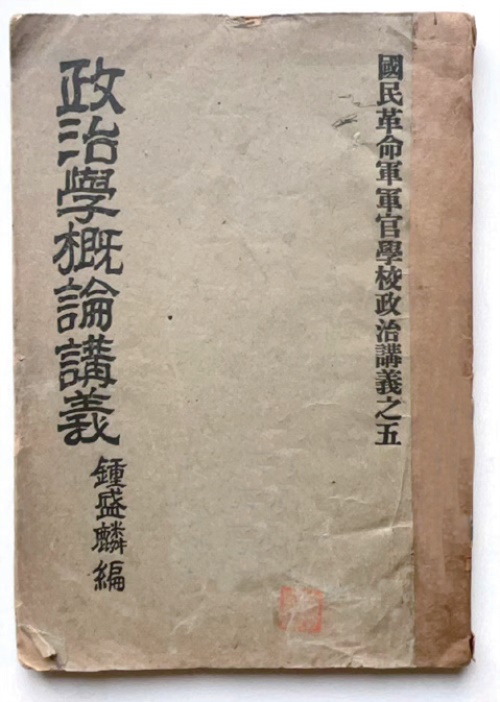 國民革命軍軍官學校政治講義之五
政治學概論講義
鍾盛麟編